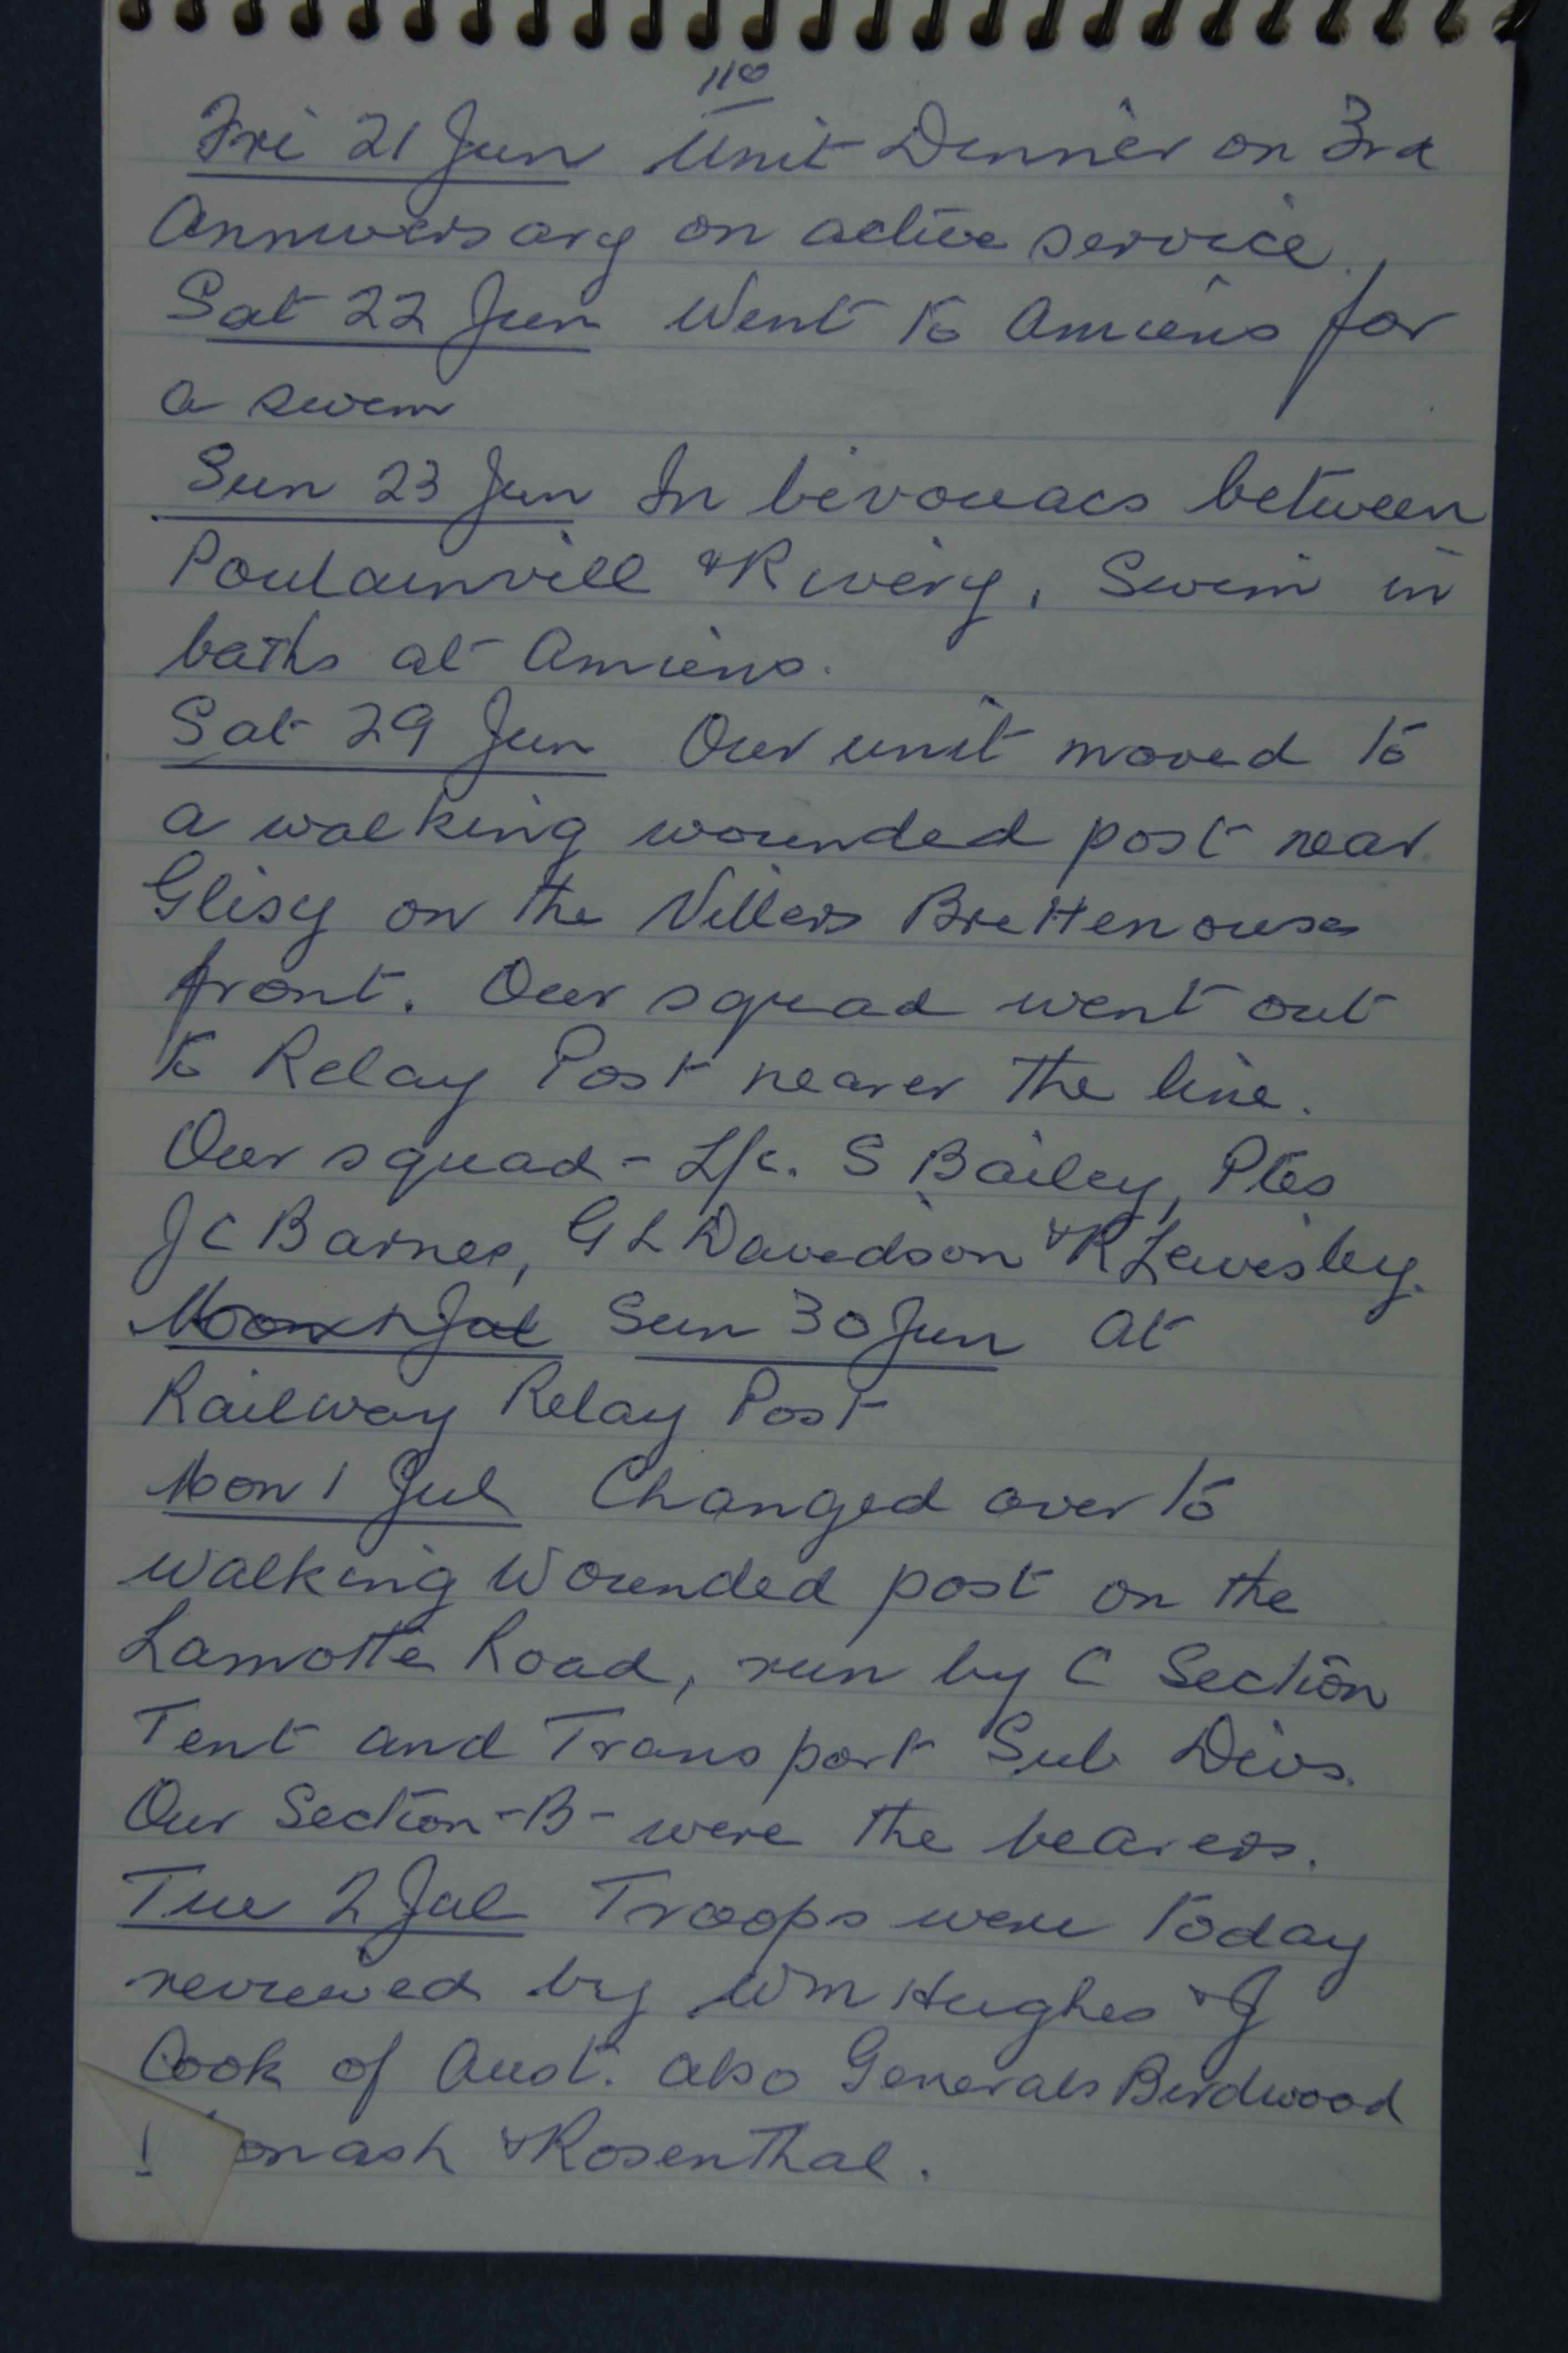 110
Fri 21 Jun Unit Dinner on 3rd
Anniversary on active service.
Sat 22 Jun Went to Amiens for
a swim
Sun 23 Jun In bivouacs between
Poulainvill & Rivery, Swim in
baths at Amiens.
Sat 29 Jun Our unit moved to
a walking wounded post near
Glisy on the Villers Brettenouse
front. Our squad went out
to Relay Post nearer the line.
Our squad - L/c. S Bailey, Ptes
J C Barnes, G L Davidson & R Lewisley.
Mon 1 Jul Sun 30 Jun At
Railway Relay Post
Mon 1 Jul Changed over to
walking Wounded post on the
Lamotte Road, run by C Section
Tent and Transport Sub Divs.
Our Section - B - were the bearers.
Tue 2 Jul Troops were today
reviewed by Wm Hughes & J
Cook of Aust. also Generals Birdwood
onash & Rosenthal.